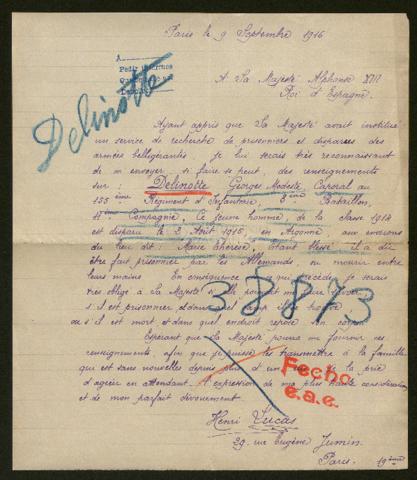 Paris le 9 Septembre 1916
A
Delinotte
A Sa Majesté Alphonse XIII
Roi d'Espagne.
Ayant appris que Sa Majesté avait institué
un service de recherche de prisonniers et disparus des
armées belligérantes je lui serais très reconnaissant
de m'envoyer si faire se peut, des renseignements
sur : Delinotte Georges Modeste, Caporal au
155ème Régiment d'Infanterie, 8ème Bataillon,
Compagnie, Ce jeune homme, de la classe 1914
est disparu le 2 Août 1915, en Argonne aux environs
du lieu dit: Marie Thérèse, étant blessé il a dû
être fait prisonnier par les Allemands ou mourir entre
leurs mains. En conséquence ce qui précède je serais
très obligé à Sa Majesté si elle pouvait me faire savoir
s'il est prisonnier et dans quel camp
ou s'il est mort et dans quel endroit repose son corps.
38873
Espérant que Sa Majesté pourra me fournir ces
renseignements, afin que je puisse les transmettre à la famille
qui est sans nouvelles depuis plus d'un an, je la prie
d'agréer en attendant l'expression de ma plus haute considération
et de mon parfait dévouement.
Fecho
e.a.e.
Henri Lucas
29, rue Eugène Jumin,
Paris. 19ème